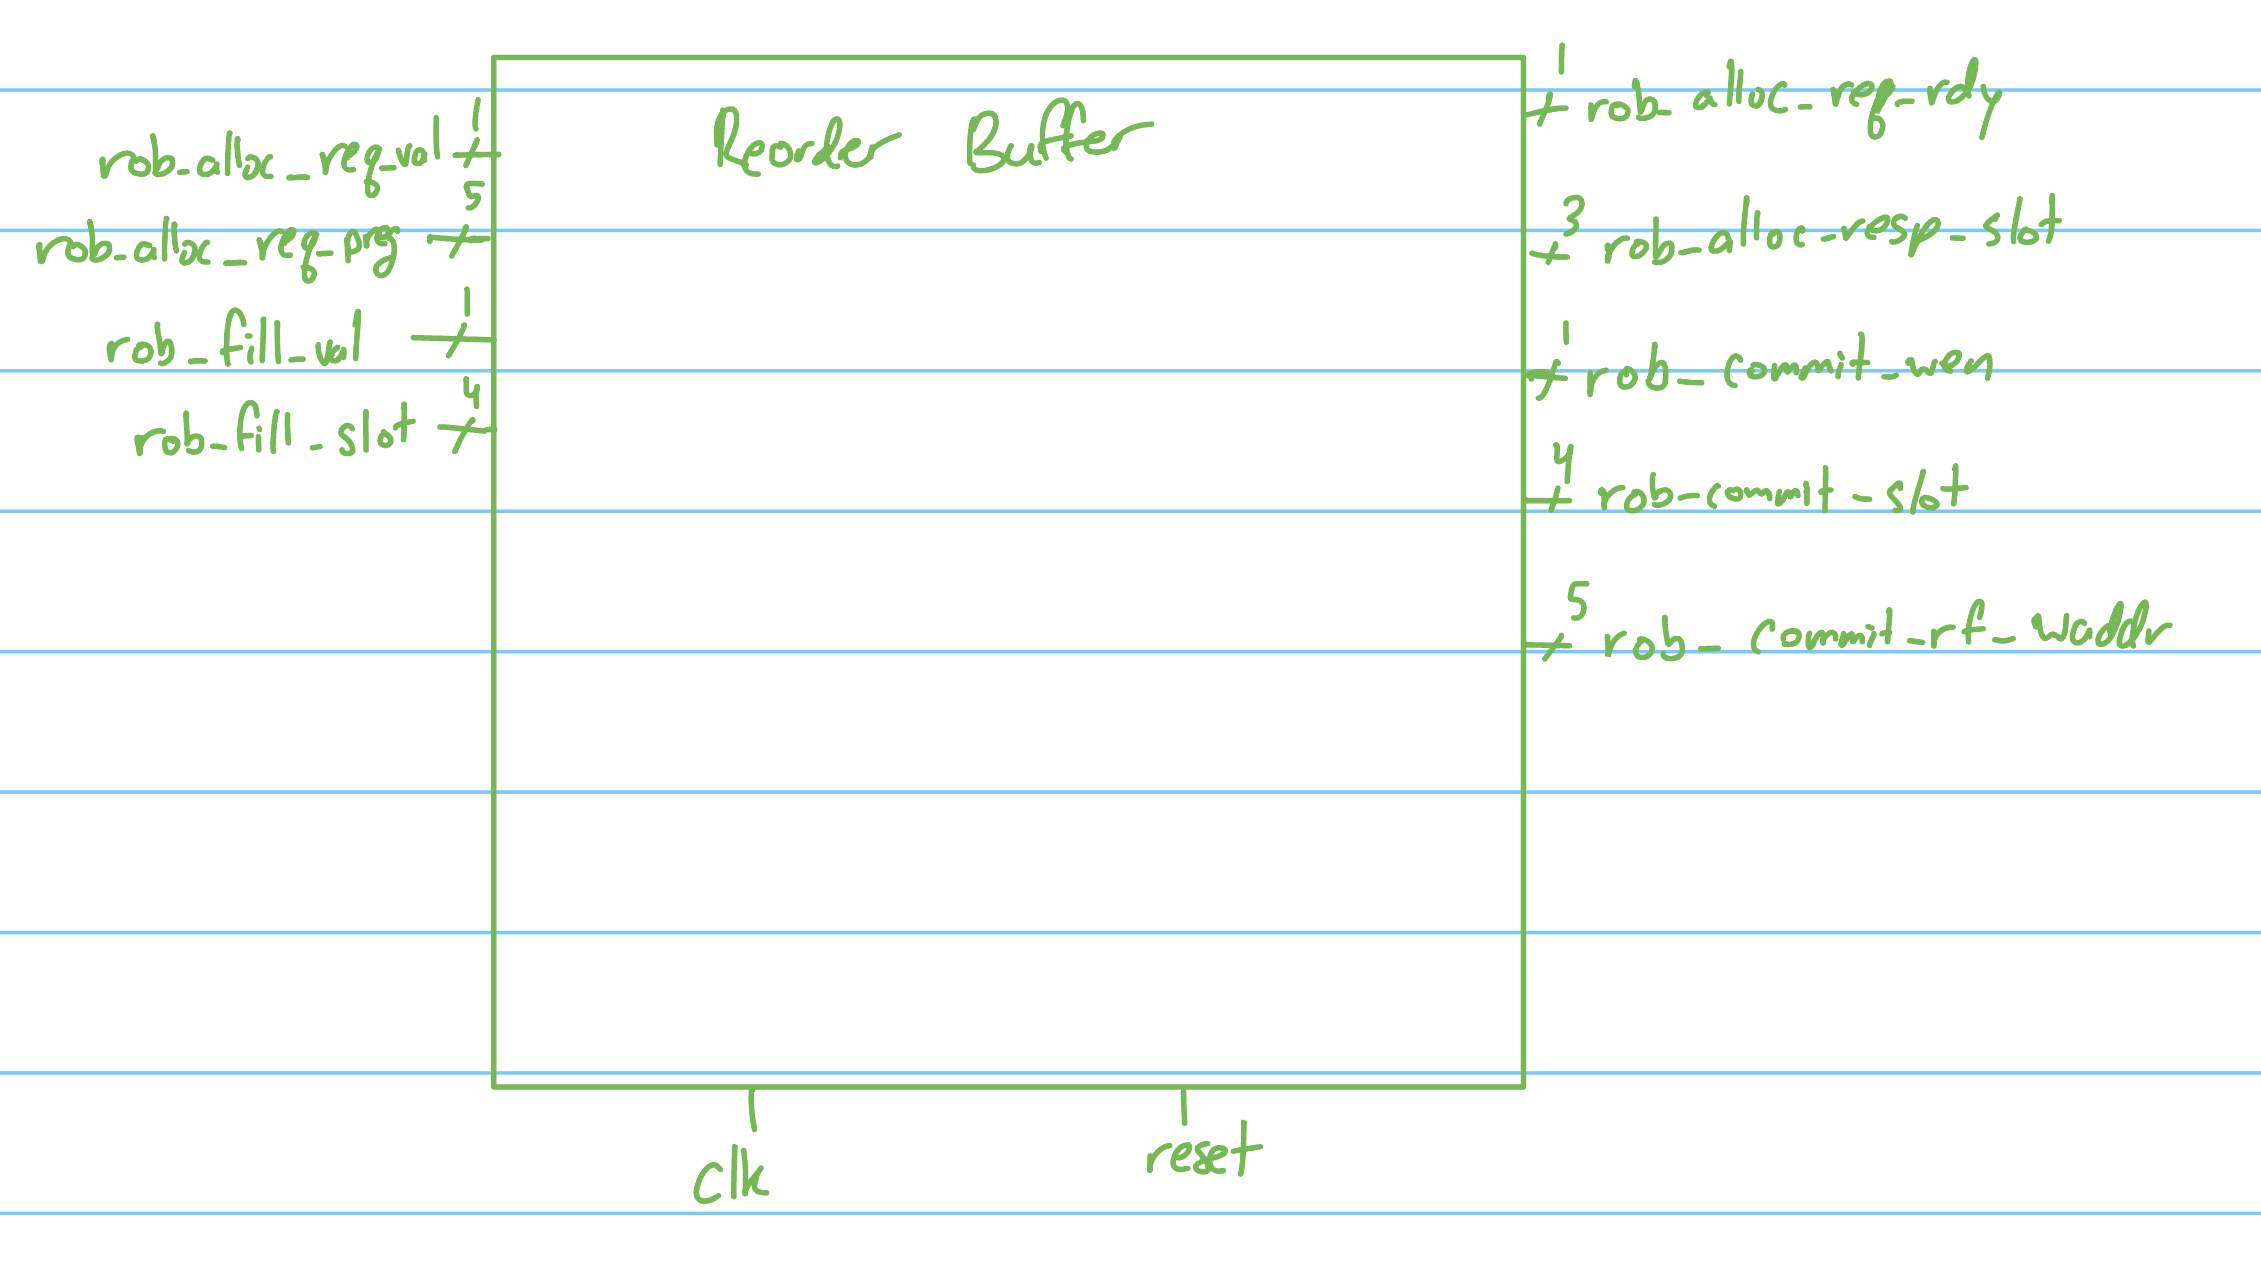 Reorder Buffer
1
rob_alloc_req_val
5
rob_alloc_req_preg
1
rob_fill_val
4
rob_fill_slot
1
rob_alloc_req_rdy
3
rob_alloc_resp_slot
1
rob_commit_wen
4
rob_commit_slot
5
rob_commit_rf_waddr
clk
reset